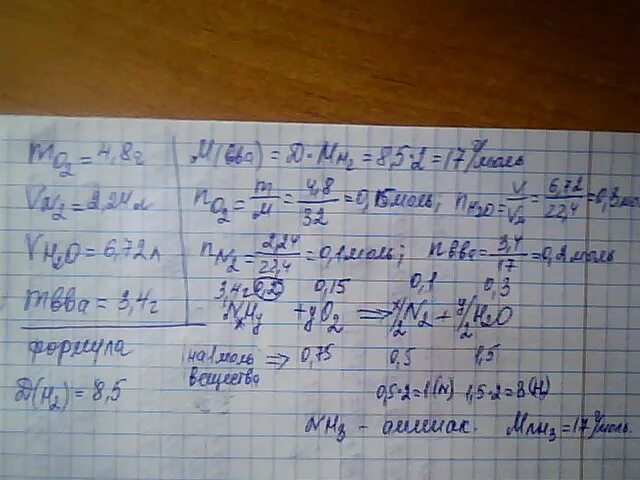 mO₂ = 4,8г
VN₂ = 2,24л
VH₂O = 6,72л
mвва = 3,4г
формула
Д(H₂) = 8,5
M(вва) = Д·MH₂ = 8,5·2 = 17 г/моль
nO₂ = m/M = 4,8/32 = 0,15моль; nH₂O = V/Vм = 6,72/22,4 = 0,3моль
nN₂ = 2,24/22,4 = 0,1моль; nвва = 3,4/17 = 0,2моль
3,4г 0,2 0,15 0,1 0,3
NxHy + yO₂ ⇒ x/2N₂ + y/2H₂O
на 1 моль вещества ⇒ 0,75 0,5 1,5
0,5·2=1(N) 1,5·2=3(H)
NH₃ - аммиак. MNH₃ = 17 г/моль.